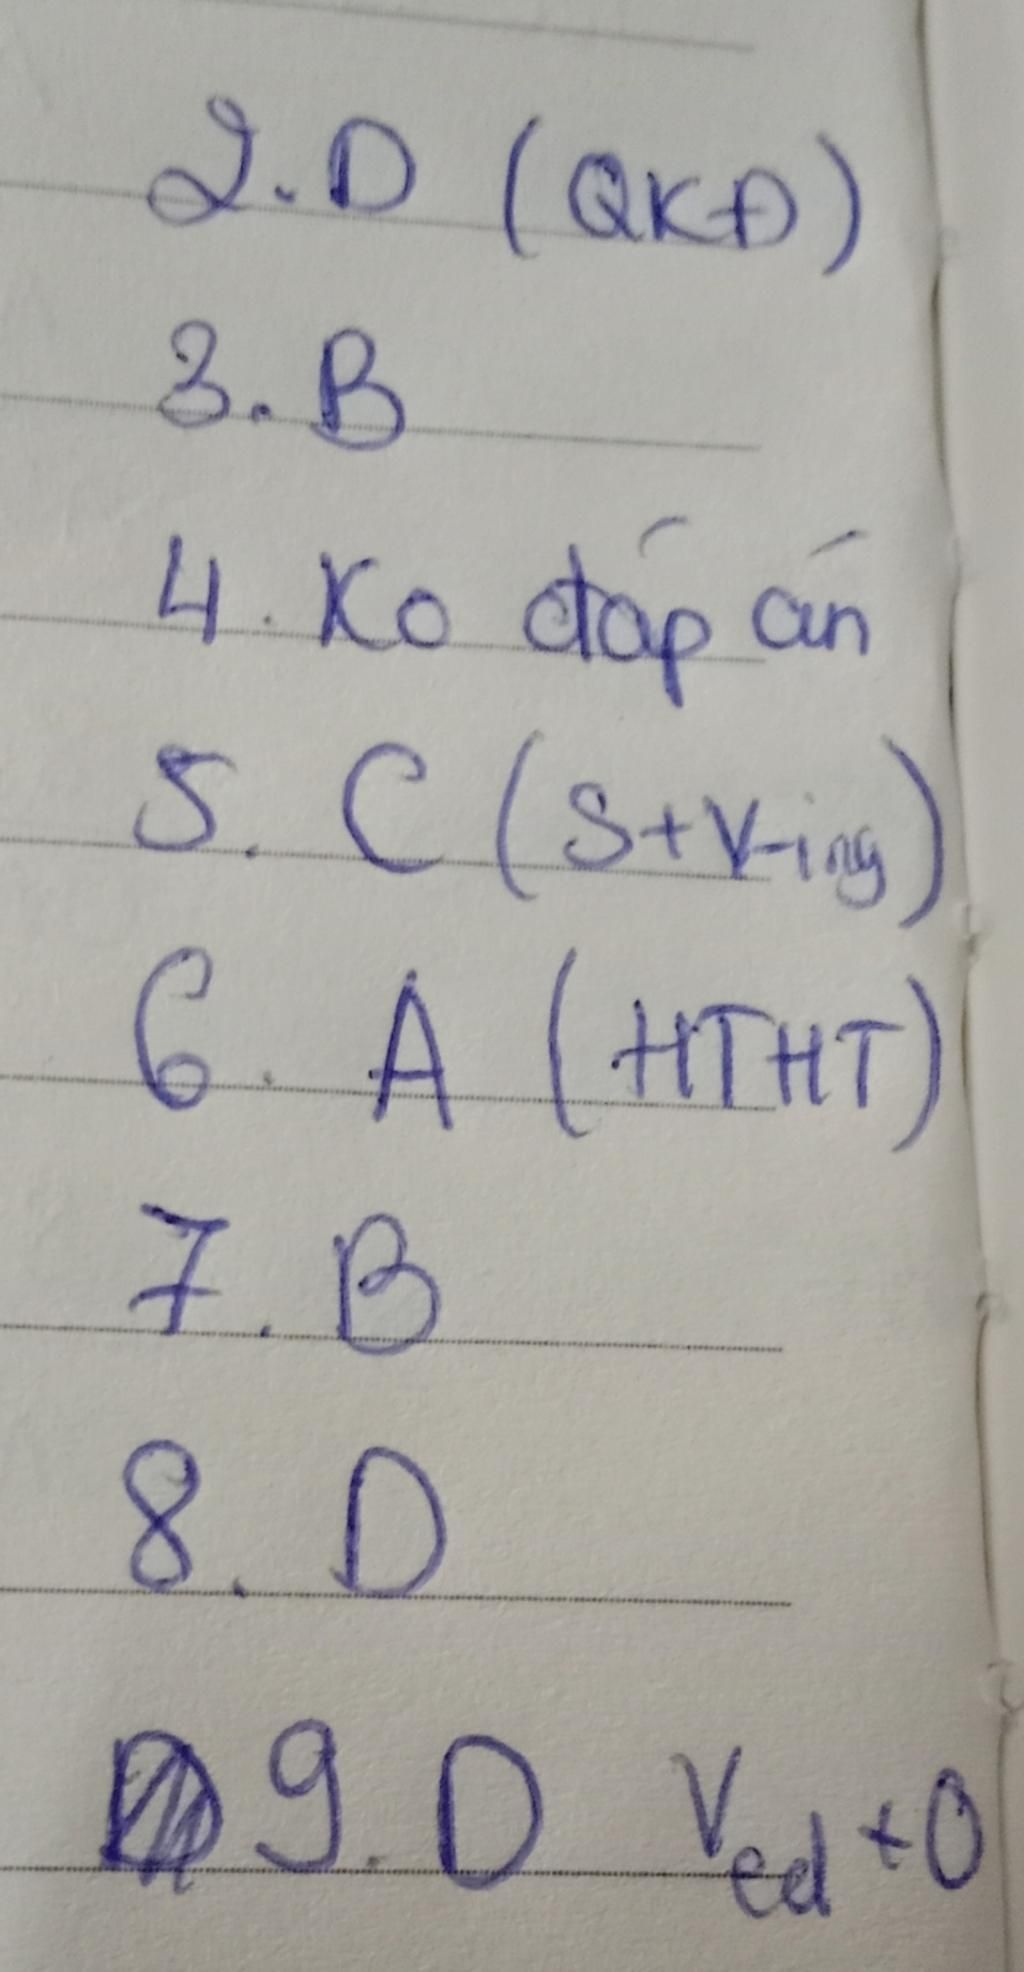 2. D (QKĐ)
3. B
4. Ko đáp án
5. C (S+V-ing)
6. A (HTHT)
7. B
8. D
9. D Ved + O